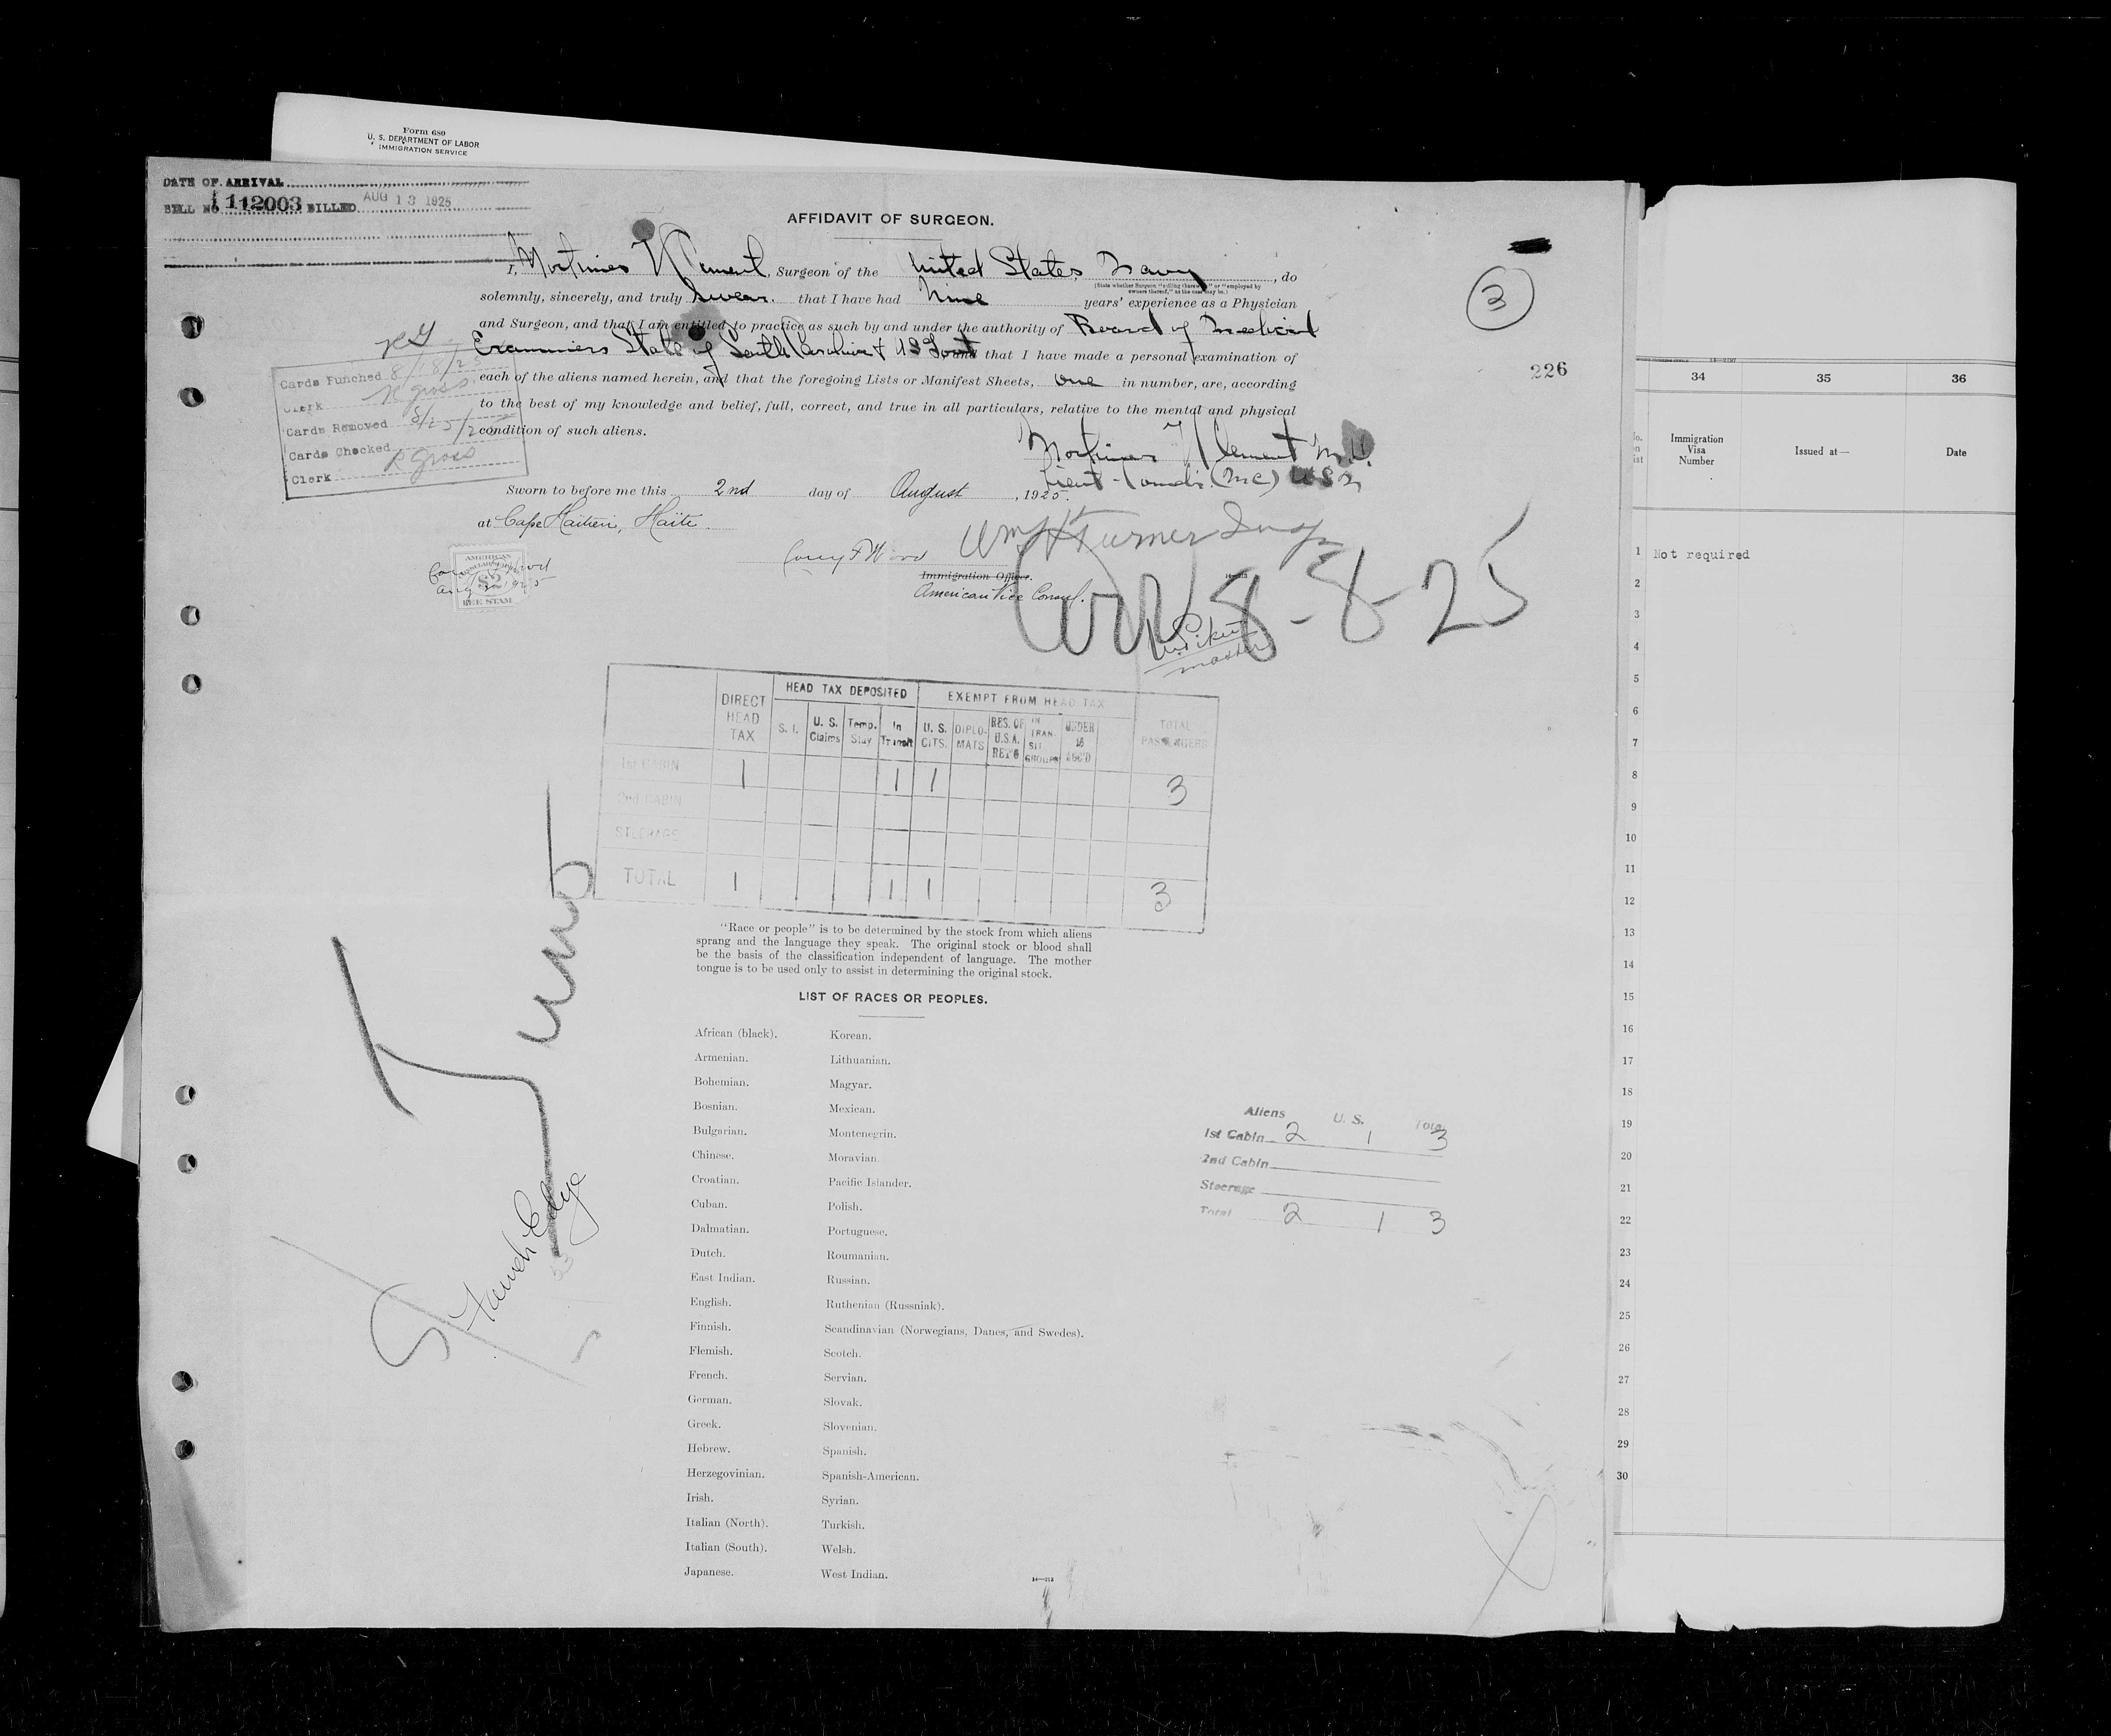 Form 680
U. S. DEPARTMENT OF LABOR
IMMIGRATION SERVICE
DATE OF ARRIVAL
BILL No 112003 BILLED AUG 13 1925
AFFIDAVIT OF SURGEON.
I, Mortimer Clement, Surgeon of the United States Navy, do
(State whether Surgeon "sailing therewith" or "employed by
owners thereof," as the case may be.)
solemnly, sincerely, and truly Swear that I have had Nine years' experience as a Physician
and Surgeon, and that I am entitled to practice as such by and under the authority of Board of Medical
Examiners State of South Carolina & US Govt and that I have made a personal examination of
each of the aliens named herein, and that the foregoing Lists or Manifest Sheets, one in number, are, according
to the best of my knowledge and belief, full, correct, and true in all particulars, relative to the mental and physical
condition of such aliens.
Mortimer Clement M.D.
Lieut-Comdr. (MC) USN
Sworn to before me this 2nd day of August, 1925.
at Cape Haitien, Haiti.
Immigration Officer.
American Vice Consul.
Wm H Turner Insp
8-8-25
3
226
RG
Cards Punched 8/18/25
Clerk R Gross
Cards Removed
Cards Checked
Clerk R Gross
AMERICAN
CONSULAR SERVICE
$2
FEE STAMP
HEAD TAX DEPOSITED EXEMPT FROM HEAD TAX
DIRECT HEAD TAX S. I. U. S. Claims Temp. Stay In Transit U. S. CITS. DIPLO-MATS RES. OF U.S.A. RET'G IN TRAN-SIT GROUPS UNDER 16 ACC'D TOTAL PASSENGERS
1st CABIN 1 1 1 3
2nd CABIN
STEERAGE
TOTAL 1 1 1 3
"Race or people" is to be determined by the stock from which aliens
sprang and the language they speak. The original stock or blood shall
be the basis of the classification independent of language. The mother
tongue is to be used only to assist in determining the original stock.
LIST OF RACES OR PEOPLES.
African (black). Korean.
Armenian. Lithuanian.
Bohemian. Magyar.
Bosnian. Mexican.
Bulgarian. Montenegrin.
Chinese. Moravian.
Croatian. Pacific Islander.
Cuban. Polish.
Dalmatian. Portuguese.
Dutch. Roumanian.
East Indian. Russian.
English. Ruthenian (Russniak).
Finnish. Scandinavian (Norwegians, Danes, and Swedes).
Flemish. Scotch.
French. Servian.
German. Slovak.
Greek. Slovenian.
Hebrew. Spanish.
Herzegovinian. Spanish-American.
Irish. Syrian.
Italian (North). Turkish.
Italian (South). Welsh.
Japanese. West Indian.
Aliens U. S. Total
1st Cabin 2 1 3
2nd Cabin
Steerage
Total 2 1 3
34 35 36
Immigration Visa Number Issued at— Date
1 Not required
2
3
4
5
6
7
8
9
10
11
12
13
14
15
16
17
18
19
20
21
22
23
24
25
26
27
28
29
30